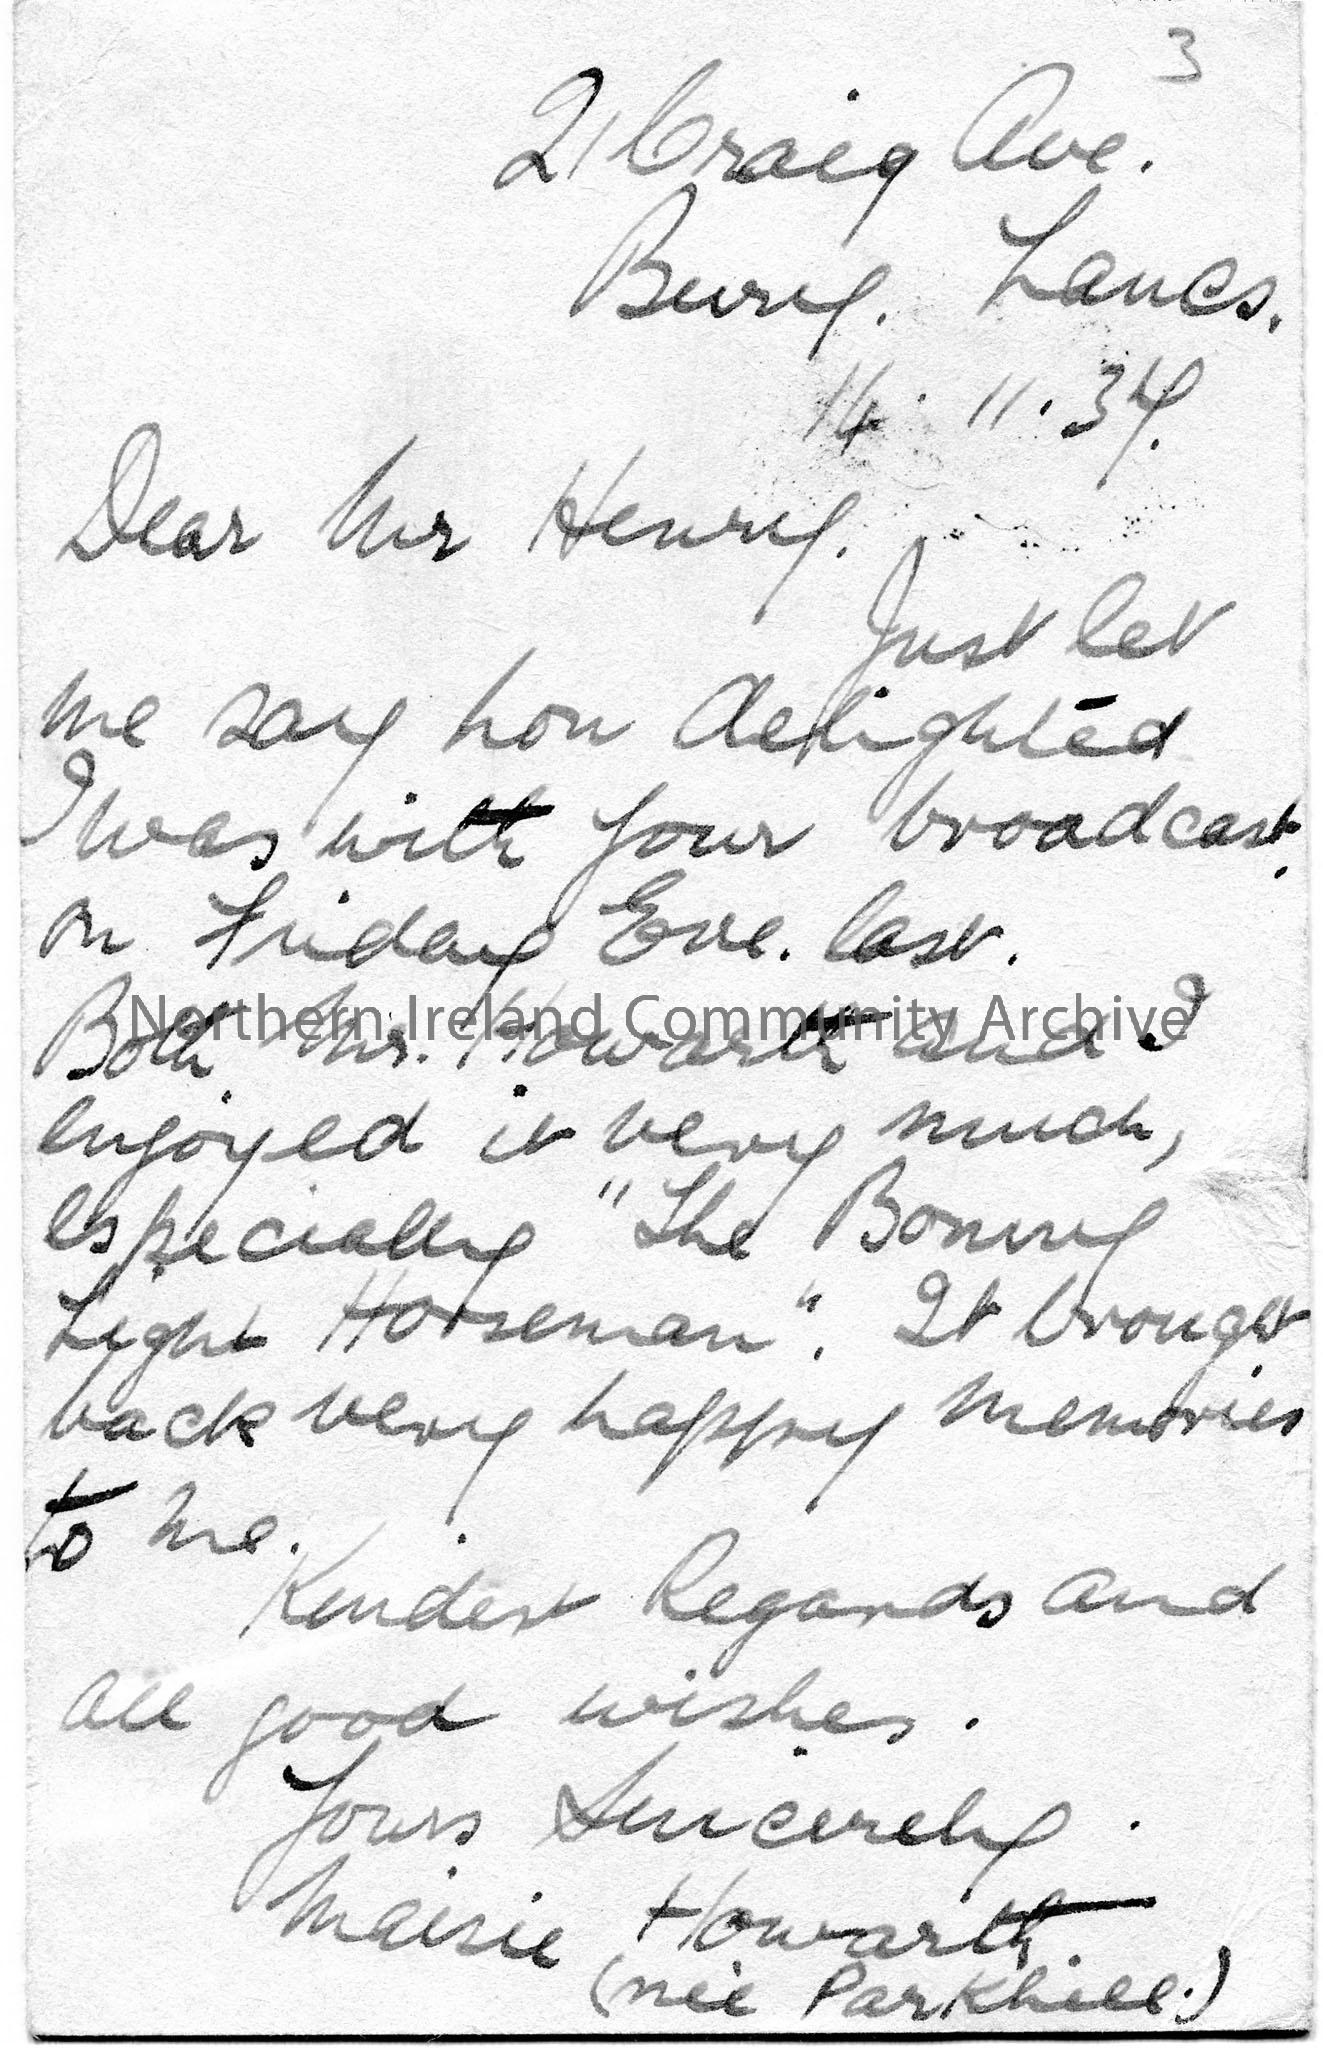 3
21 Craig Ave.
Bury. Lancs.
14. 11. 34.
Dear Mr Henry.
Just let
me say how delighted
I was with your broadcast
on Friday Eve. last.
Both Mr. Howarth and I
Northern Ireland Community Archive
enjoyed it very much,
especially "The Bonny
Light Horseman". It brought
back very happy memories
to me.
Kindest Regards and
all good wishes.
Yours Sincerely.
Maisie Howarth.
(neé Parkhill.)